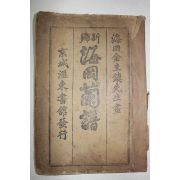 海岡金圭鎭先生畫
新編 海岡蘭譜
京城滙東書館發行